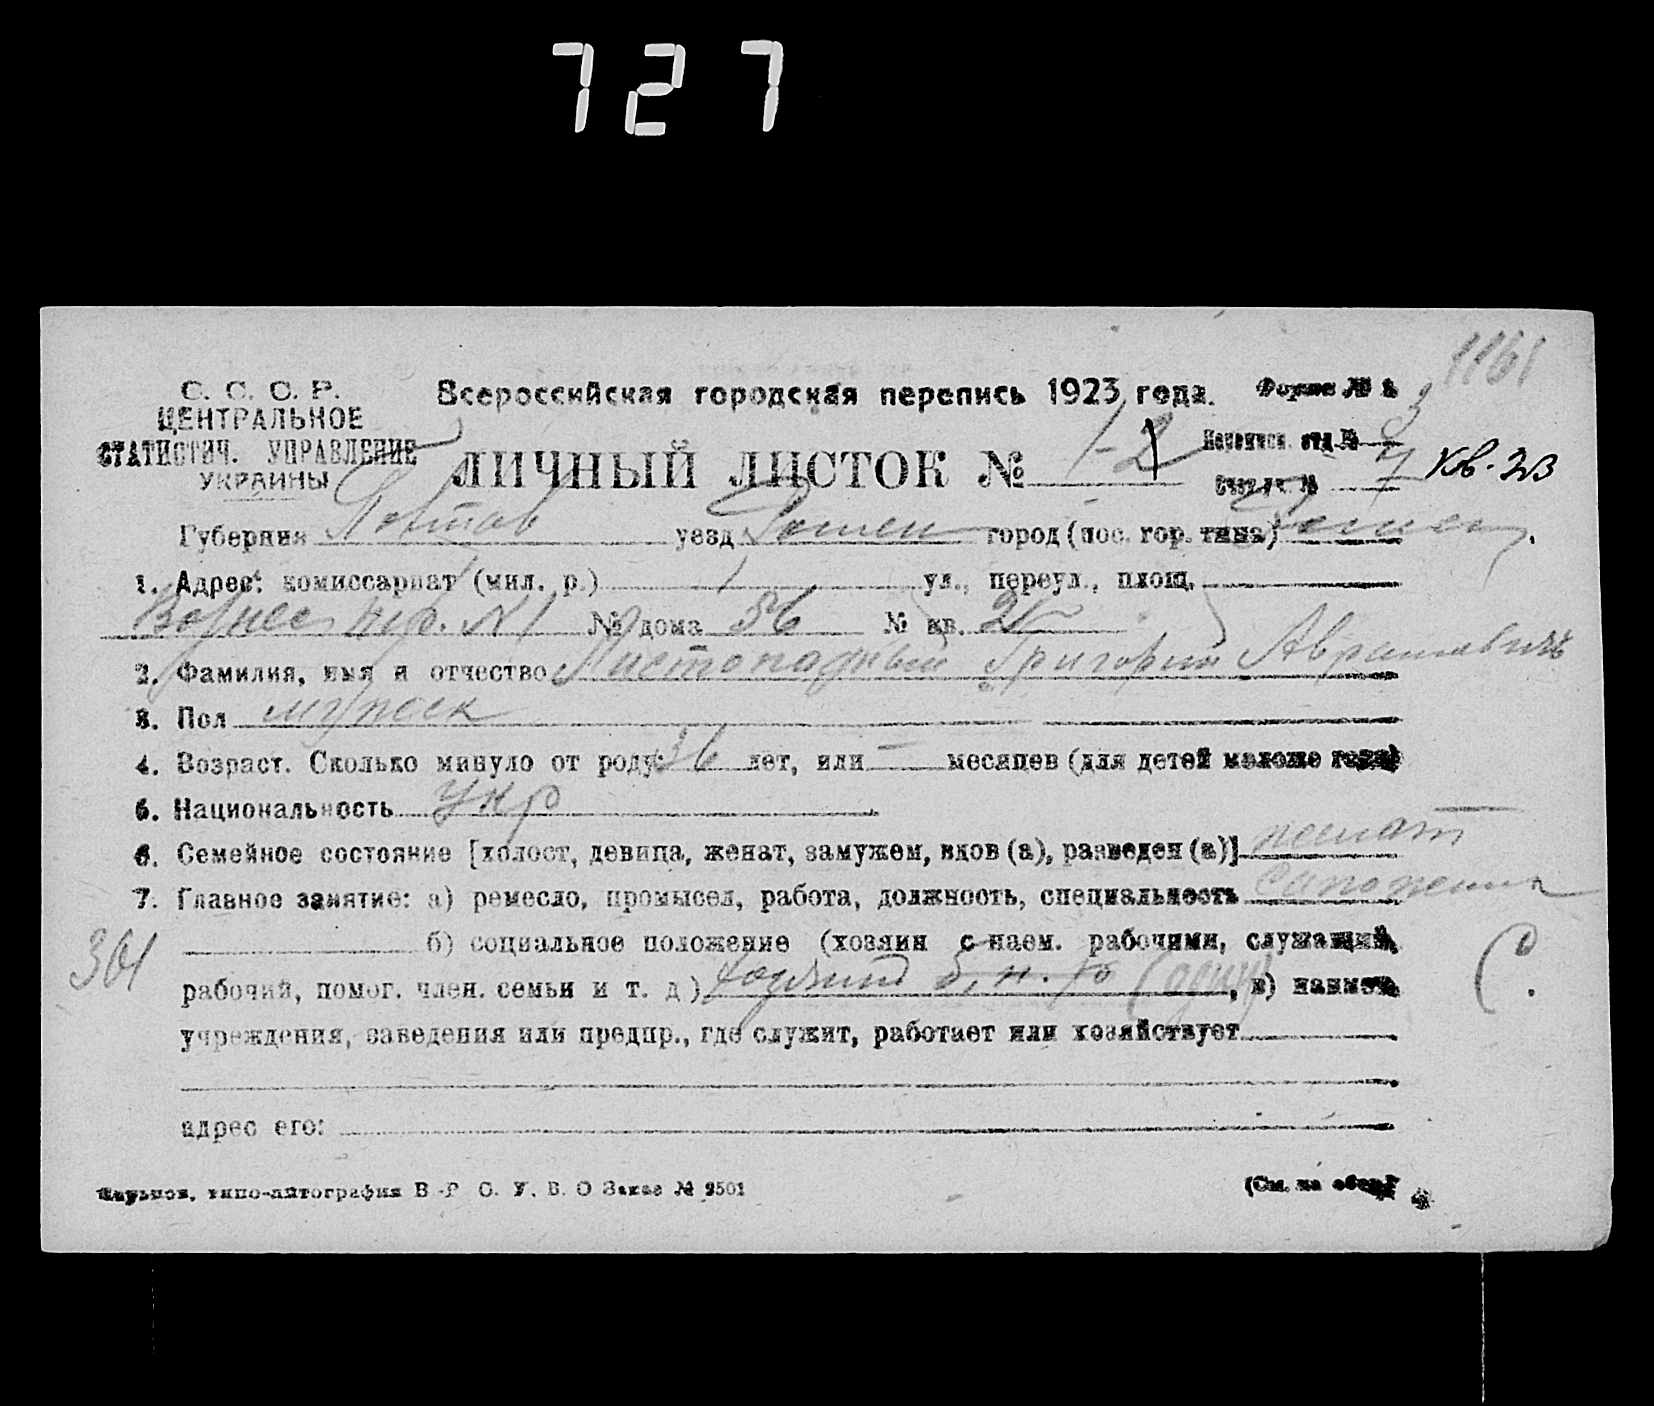 727
1161
С. С. С. Р.
ЦЕНТРАЛЬНОЕ
СТАТИСТИЧ. УПРАВЛЕНИЕ
УКРАИНЫ
Всероссийская городская перепись 1923 года.
Форма № 1
3
ЛИЧНЫЙ ЛИСТОК № 1-2
отд №
7 кв. 2в
Губерния Полтав уезд Ромен город (пос. гор. типа) Ромен
1. Адрес: комиссариат (мил. р.) 1 ул., переул., площ.
Вознес пер. №1 № дома 36 № кв. 2
2. Фамилия, имя и отчество Листопадный Григорий Аврамович
3. Пол мужск
4. Возраст. Сколько минуло от роду: 36 лет, или — месяцев (для детей моложе года)
5. Национальность укр
6. Семейное состояние [холост, девица, женат, замужем, вдов (а), разведен (а)] женат
7. Главное занятие: а) ремесло, промысел, работа, должность, специальность сапожник
301
б) социальное положение (хозяин с наем. рабочими, служащий,
рабочий, помог. член. семьи и т. д.) хозяин б. н. р (один), в) наимен.
С.
учреждения, заведения или предпр., где служит, работает или хозяйствует
адрес его:
Харьков, типо-литография В.-Р. С. У. В. О Заказ № 9501
(См. на обор.)